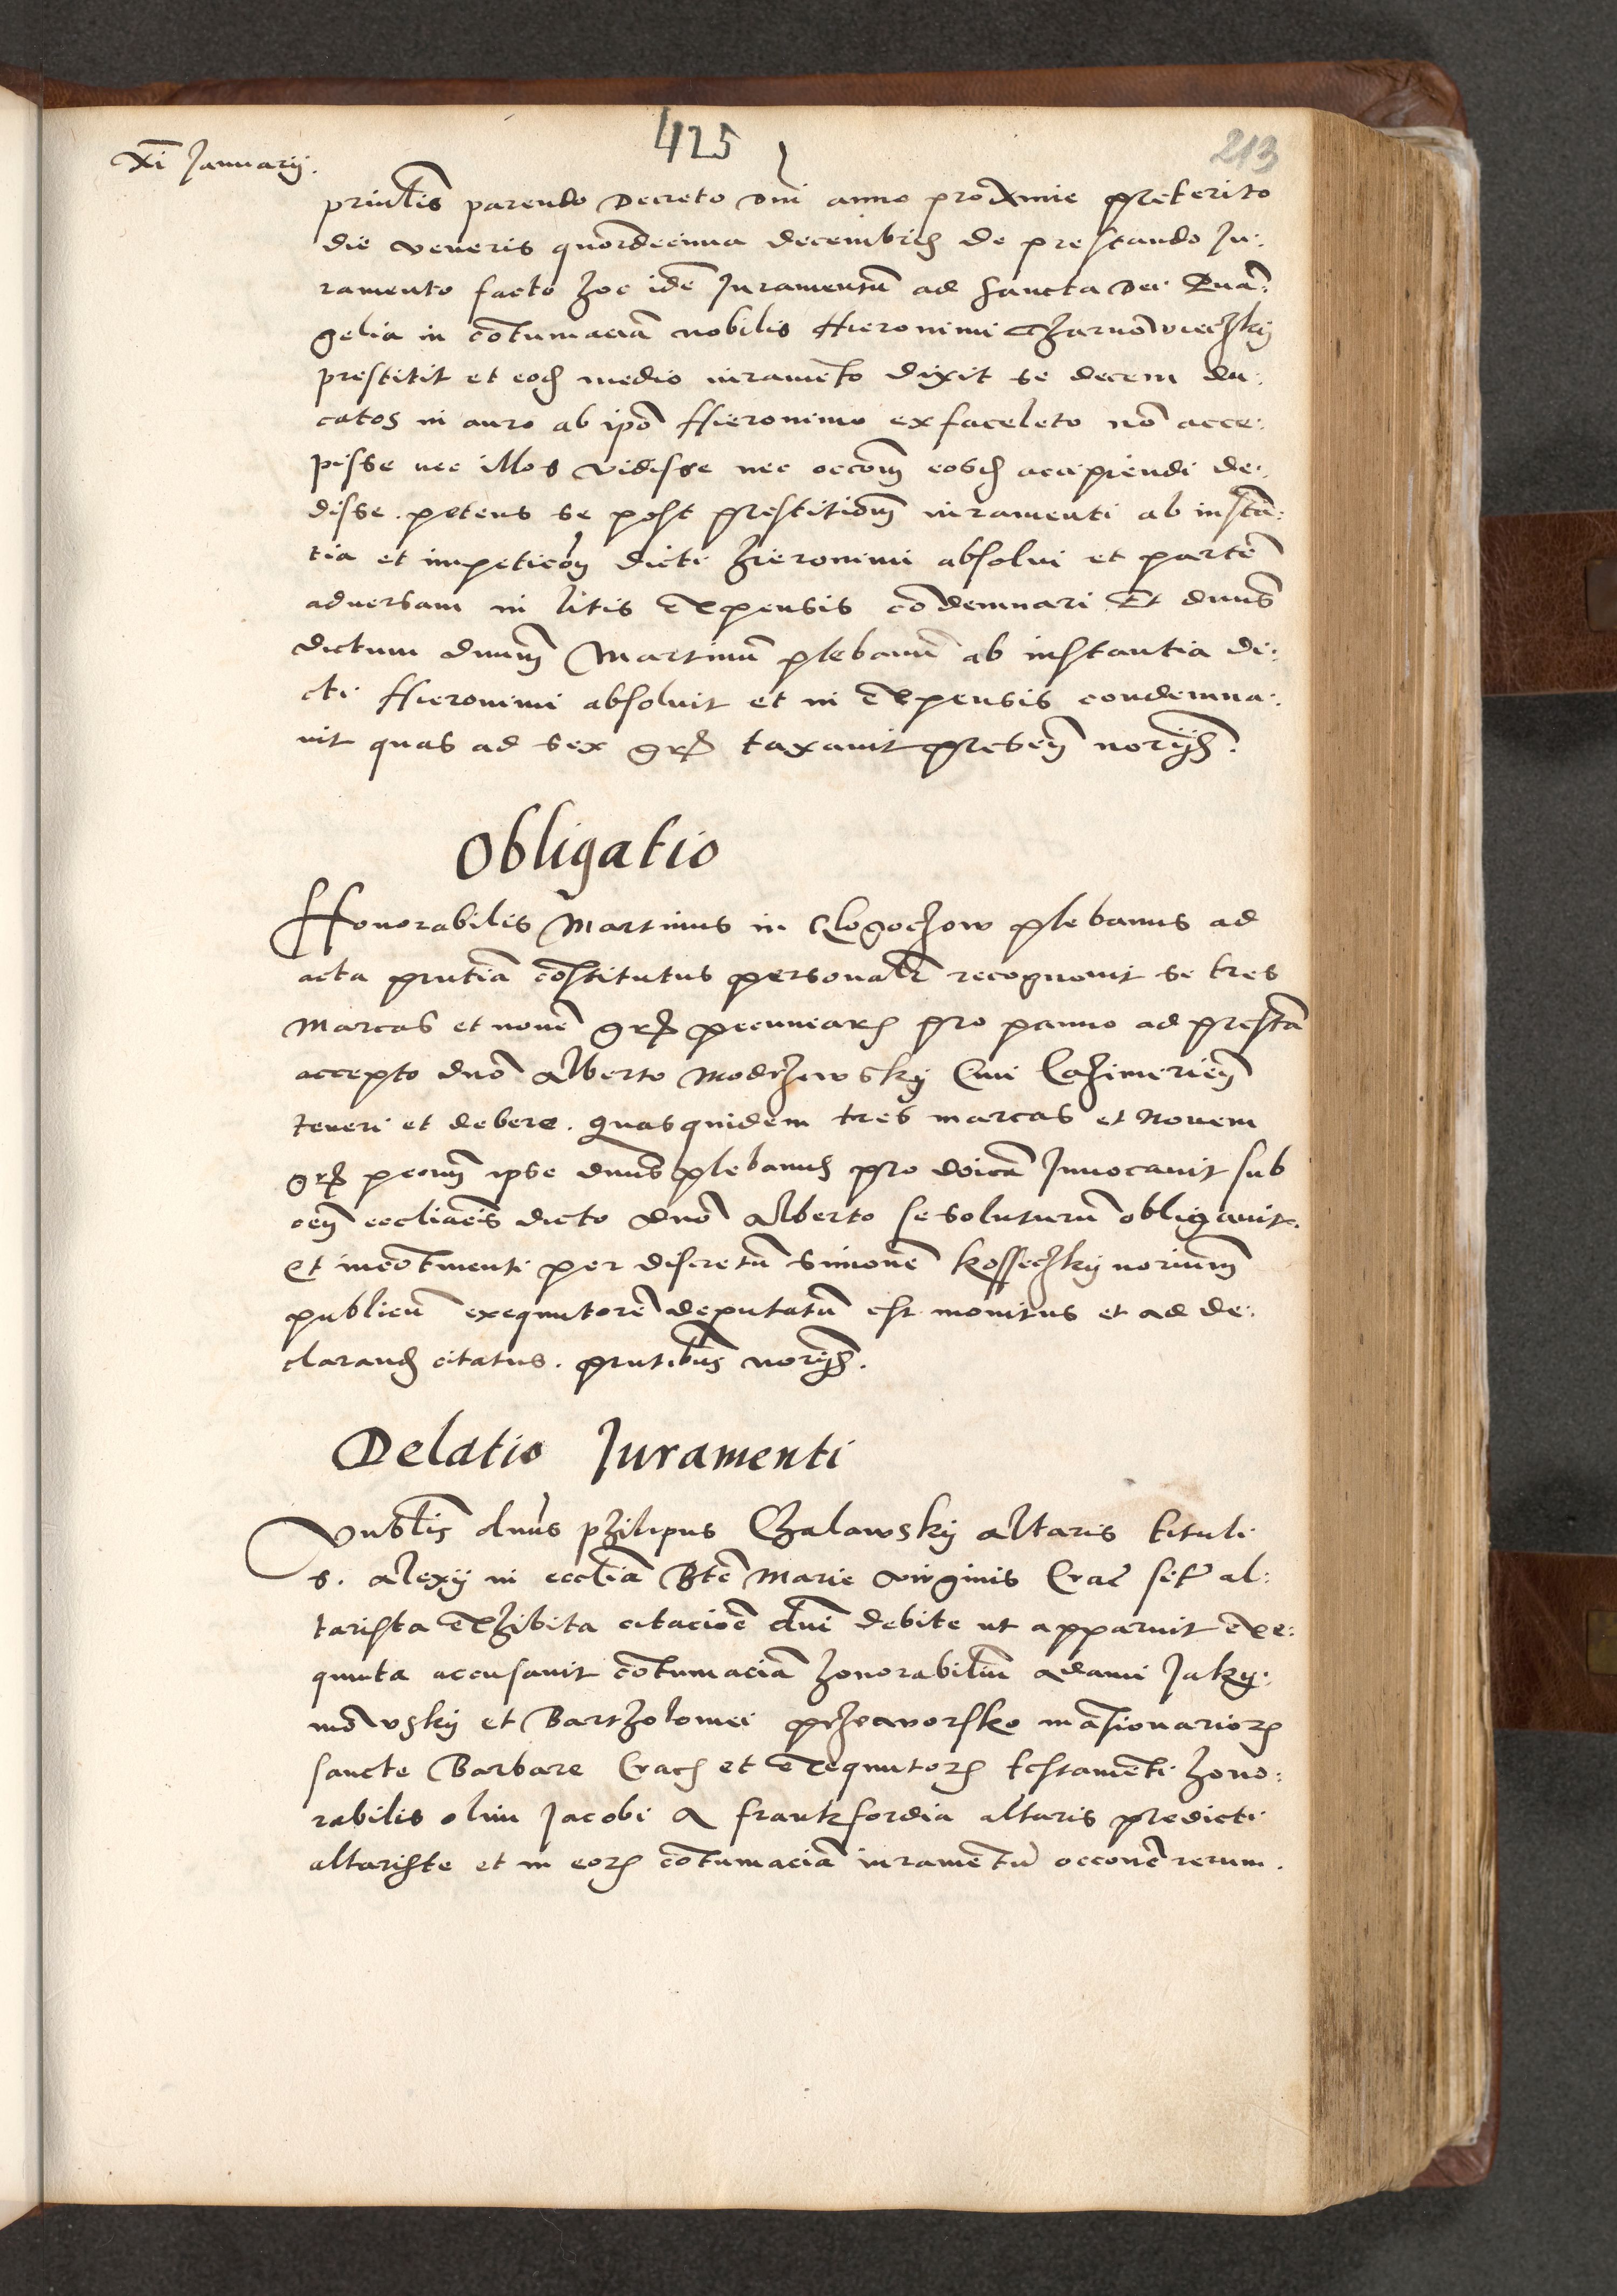 425
213
xi Januarij.
priñlis parendo Decreto dni anno proxime preterito
die veneris quordecima decembris de prestando Ju:
ramento facto hoc idẽ Juramentũ ad sancta Dei Euã:
gelia in cõtumaciã nobilis Hieronimi
prestitit et eod medio iuramẽto dixit se decem du:
catos in auro ab ipõ Hieronimo ex faceleto nõ acce:
pisse nec illos vidisse nec occõm eosd accipiendi de:
disse . petens se post prestitiõm iuramenti ab instã:
tia et impeticõm dicti hieronimi absolui et partẽ
aduersam in litis expensis cõdemnari Et dnus
dictum dnum Martinũ plebanũ ab instantia di:
cti Hieronimi absoluit et in expensis condemna:
uit quas ad sex gr taxauit presen norijs.
Obligatio
Honorabilis Martinus in Clogoczow plebanus ad
acta prntiã cõstitutus personalr recognouit se tres
Marcas et nouẽ gr pecuniar pro panno ad prestã
accepto dnõ Alberto Modrzewskij Ciui Cazimirien
teneri et debere . quasquidem tres marcas et Nouem
gr pecum ipse dnus plebanus pro Jnuocauit sub
cen eccliacis dicto dnõ Alberto se soluturũ obligauit.
et incõtinenti per discretũ Simonẽ Kosseczkij norium
publicũ exequutorẽ deputatũ est monitus et ad de:
clarand citatus . prntibus norijs.
Delatio Juramenti
Vnblis dnus philipus Chalawskij altaris tituli
S. Alexij in eccliã Btẽ Marie virginis Crac sitẽ al:
tarista exhibita citaciõe dni debite ut apparuit exe:
quuta accusauit cõtumaciã honorabiliũ Adami Jaky:
mowskij et Bartholomei przeworsko mãsionarior
sancte Barbare Crac et exequutor testamẽti hono:
rabilis olim Jacobi a frankfordia altaris predicti
altariste et in eor cõtumaciã iuramẽtũ occonẽ rerum.